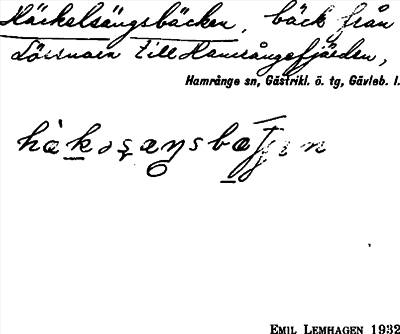 Häckelsängsbäcken, bäck från
Lössnaren till Hamrångefjärden,
Hamrånge sn, Gästrikl. ö. tg, Gävleb. l.
EMIL LEMHAGEN 1932